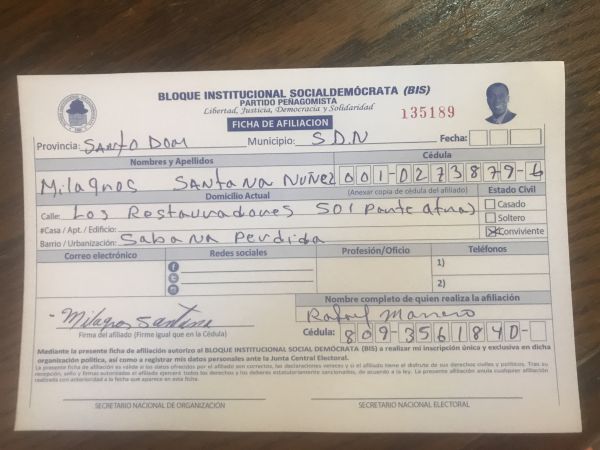 BLOQUE INSTITUCIONAL SOCIALDEMÓCRATA (BIS)
PARTIDO PEÑAGOMISTA
Libertad, Justicia, Democracia y Solidaridad
135189
FICHA DE AFILIACION
Provincia: SANTO DOM Municipio: S.D.N Fecha:
Nombres y Apellidos Cédula
Milagros SANTANA NUÑEZ 001-0273879-6
Domicilio Actual (Anexar copia de cédula del afiliado) Estado Civil
Calle: Los Restauradores 501 (parte atras) Casado
#Casa / Apt. / Edificio: Soltero
Barrio / Urbanización: Sabana Perdida Conviviente
Correo electrónico Redes sociales Profesión/Oficio Teléfonos
1)
2)
Nombre completo de quien realiza la afiliación
Milagros Santana Rafael Marrero
Firma del afiliado (Firme igual que en la Cédula) Cédula: 809-3561840-
Mediante la presente ficha de afiliación autorizo al BLOQUE INSTITUCIONAL SOCIAL DEMÓCRATA (BIS) a realizar mi inscripción única y exclusiva en dicha
organización política, así como a registrar mis datos personales ante la Junta Central Electoral.
La presente ficha de afiliación es válida si los datos ofrecidos por el afiliado son correctos, las declaraciones veraces y si el afiliado tiene el disfrute de sus derechos civiles y políticos. Tras su
recepción, sello y firmas autorizadas el afiliado ejercerá todos los derechos y los deberes estatutariamente sancionados, de acuerdo a la ley. La presente afiliación anula cualquier afiliación
realizada con anterioridad a la fecha que aparece en esta ficha.
SECRETARIO NACIONAL DE ORGANIZACIÓN SECRETARIO NACIONAL ELECTORAL